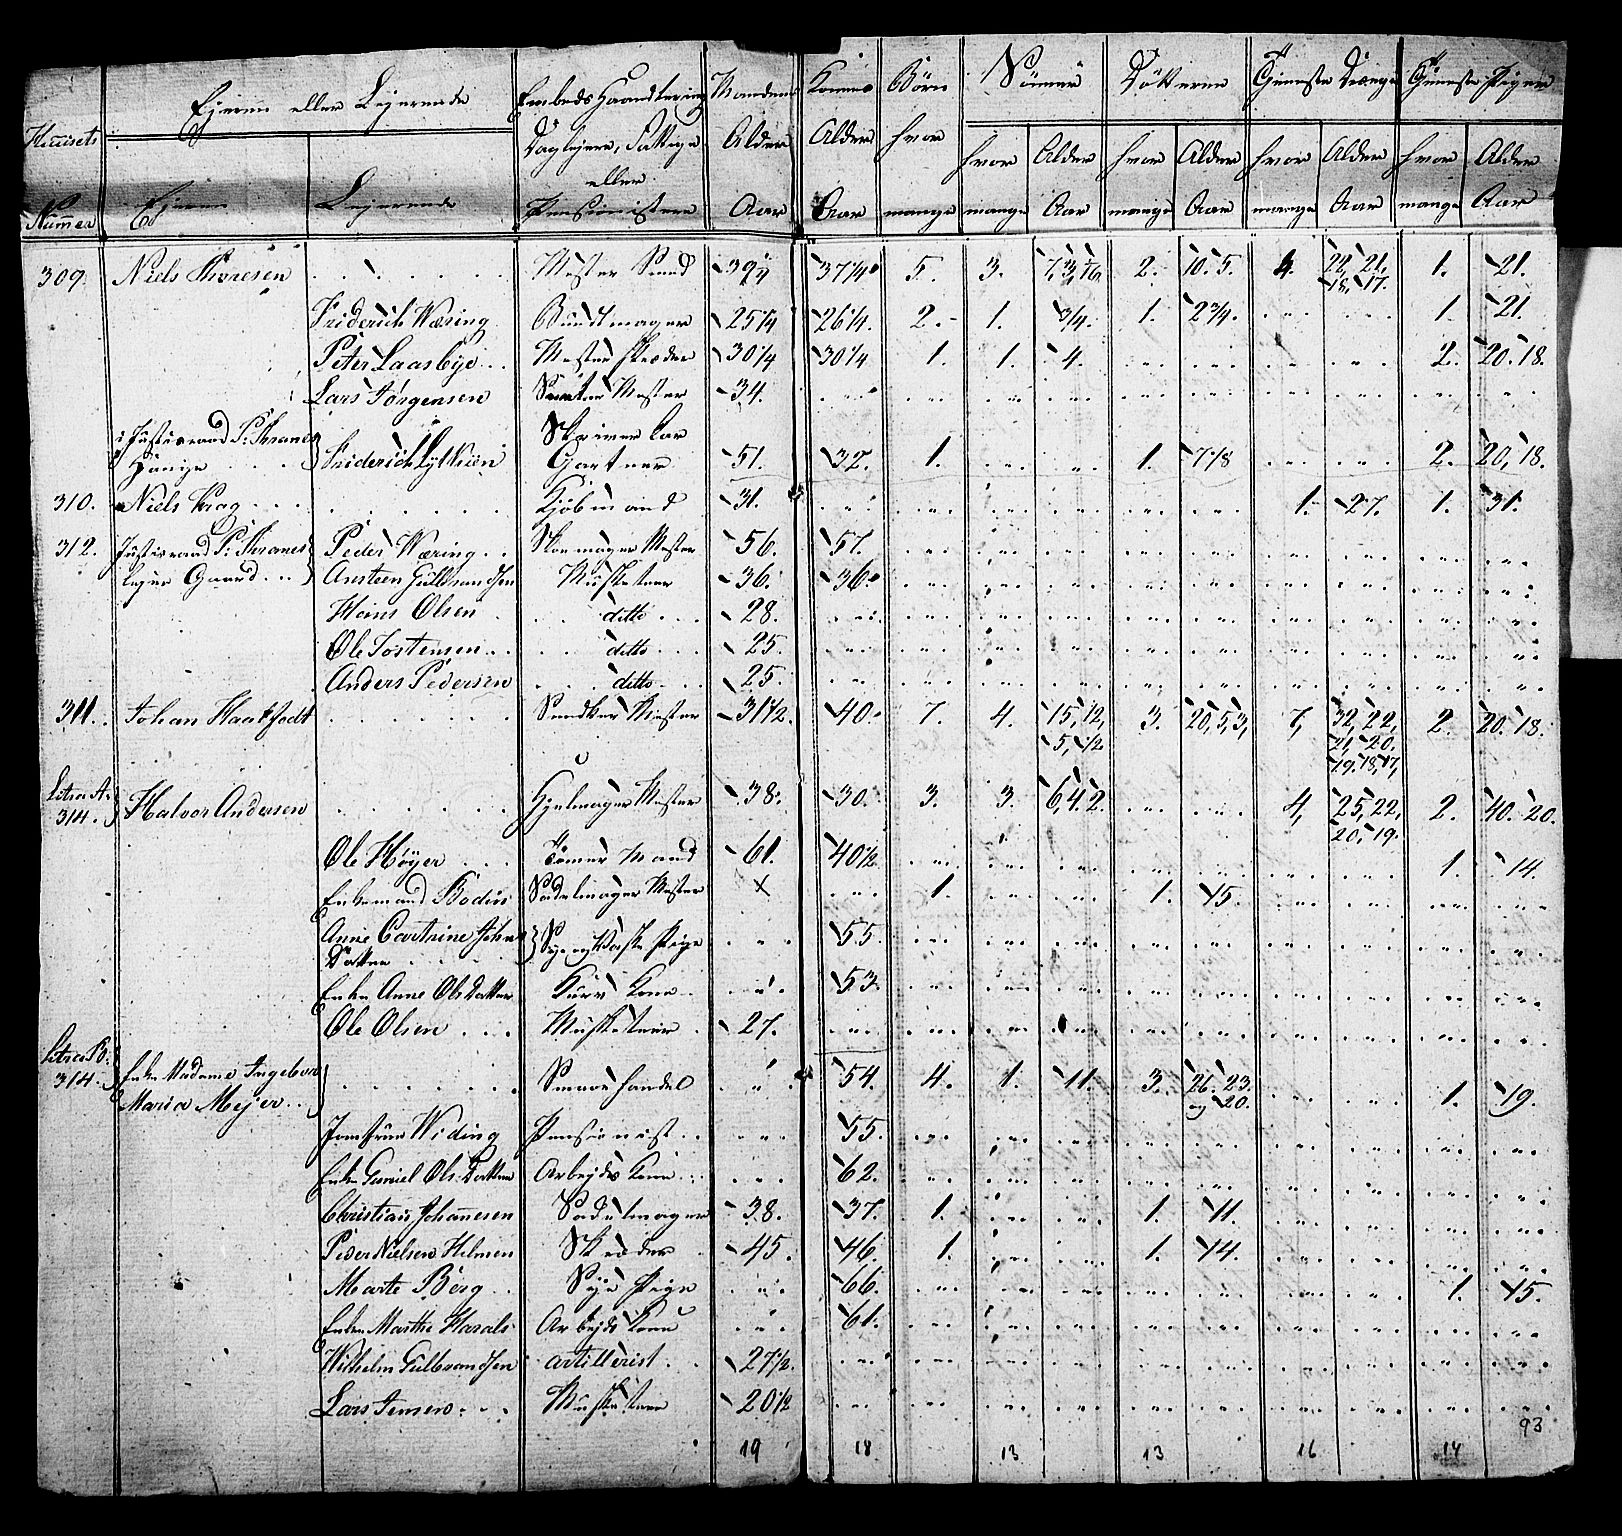 Huusets Nummer | Ejeren eller Lejerende | Embeds Haandtering Daglejere, Fattige eller Pensionister | Mandens Alder Aar | Konens Alder Aar | Børn hvor mange | Sønner | Døttrene | Tjeneste Drænge | Tjeneste Piger
Ejeren | Lejerende | hvor mange | Alder Aar | hvor mange | Alder Aar | hvor mange | Alder Aar | hvor mange | Alder Aar
309. Niels Thoresen Mester Smed 39¼ 37¼ 5. 3. 2. 10. 5. 4. 22, 21, 1. 21.
18, 17.
Friderich Wæring Bundtmager 25¼ 26¼. 2. 1. ¾. 1. 2¾. 1. 21.
Peter Laasbye Mester Skræder 30¼ 30¼ 1. 1. 4. 2. 20. 18.
Lars Jørgensen Mester 34.
i Justisraad P: Thranes
Friderich Lytkien Gartner 51. 32. 1. 1. 7/8 2. 20, 18.
310. Niels Krag Kjøbmand 31. 1. 27. 1. 31.
312. Justisraad P: Thranes Peder Wæring Skoemager Mester 56. 57.
lejer Gaard Ansteen Gulbrandsen Musketeer 36. 36.
Hans Olsen ditto 28.
Ole Tostensen ditto 25.
Anders Pedersen ditto 25
311. Johan Haakstodt Mester 31½. 40. 7. 4. 15, 12, 3. 20, 5, 3, 7, 32, 22, 2. 20. 18.
5, ½ 21, 20.
19. 18, 17,
Litra A. 314. Halvor Andersen Hjulmager Mester 38. 30. 3. 3. 6, 4. 2. 4, 25, 22, 2. 40. 20.
20, 19.
Ole Høyer Tømer Mand 61. 40½ 1. 14.
Enkemand Bodin Sadelmager Mester x 1. 1. 15.
Anne Cartrine Johns Datter Sye og Vaske Pige 55.
Enke Anne Ols Datter Kone 53.
Ole Olsen Musketeer 27.
Litra B. 314. Enke Madame Ingebor Smaae handel 54. 4. 1. 11. 3. 26. 23.
Maria Mejer og 20. 1. 19.
Jomfrue Widing Pensionist 55.
Enke Guniel Ols Datter Arbejds Kone 62.
Christian Johannesen Sadelmager 38. 37. 1. 1. 11.
Peder Nielsen Helmen Skræder 45. 46. 1. 1. 14.
Marte Berg Sye Pige 66. 1. 15.
Enke Marthe Harals Arbejds Kone 61.
Wilhelm Gulbrandsen artillerist 27½.
Lars Jensen Musketeer 20½
93
19 18 13 13 16 14